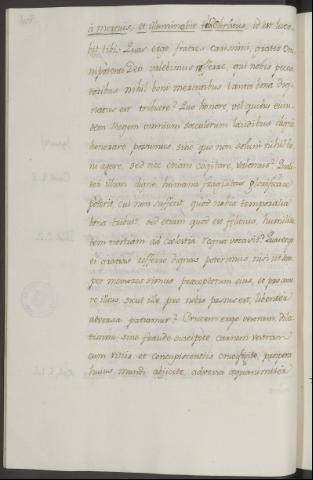 à mortuis, et illuminabit te Christus, id est luce-
bit tibi. Quas ergo fratres carissimi, gratias Om
nipotenti Deo valebimus referre, qui nobis pecca
toribus nihil boni merentibus tanta bona dig
natus est tribuere? Quo honore, vel quibus eun
dem Regem omnium sæculorum laudibus digne
honorare possumus, sine quo non solum nihil bo
ni agere, sed nec etiam cogitare, valemus? Qualiter
illum digne humana fragilitas glorificare
poterit, cui non suffecit, quod nobis temporalia
bona tribuit, sed etiam quod est plenius, humilita
tem nostram ad cælestia regna vocavit? Quas ergo
ei gratias referre dignas poterimus, nisi ut sem
per memores simus præceptorum ejus, et pro amo
re illius, sicut ille pro nobis passus est, libenter
adversa patiamur? Crucem ergo veram, dilec
tissimi, sine fraude suscipite, carnem vestram
cum vitiis et concupiscentiis crucifigite, prospera
hujus mundi abjicite, adversa æquanimiter